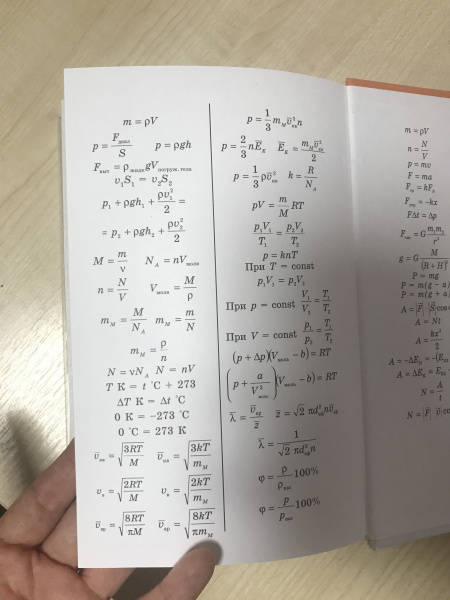 m = ρV
p = F давл / S    p = ρgh
F выт = ρ жидк gV погруж. тела
υ₁S₁ = υ₂S₂
p₁ + ρgh₁ + ρυ₁²/2 =
= p₂ + ρgh₂ + ρυ₂²/2
M = m/ν    N_A = nV моля
n = N/V    V моля = M/ρ
m_M = M/N_A    m_M = m/N
m_M = ρ/n
N = νN_A    N = nV
T K = t °C + 273
ΔT K = Δt °C
0 K = −273 °C
0 °C = 273 K
ῡ кв = √(3RT/M)    ῡ кв = √(3kT/m_M)
υ в = √(2RT/M)    υ в = √(2kT/m_M)
ῡ ар = √(8RT/πM)    ῡ ар = √(8kT/πm_M)
p = 1/3 m_M ῡ² кв n
p = 2/3 nĒ_K    Ē_K = m_M ῡ² кв / 2
p = 1/3 ρῡ² кв    k = R/N_A
pV = m/M RT
p₁V₁/T₁ = p₂V₂/T₂
p = knT
При T = const
p₁V₁ = p₂V₂
При p = const V₁/V₂ = T₁/T₂
При V = const p₁/p₂ = T₁/T₂
(p + Δp)(V моля − b) = RT
(p + a/V² моля)(V моля − b) = RT
λ̄ = ῡ ар / z̄    z̄ = √2 πd² эф nῡ ар
λ̄ = 1 / (√2 πd² эф n)
φ = ρ/ρ нас 100%
φ = p/p нас 100%
m = ρV
n = N/V
p = mυ
F = ma
F тр = kF д
F упр = −kx
FΔt = Δp
F тяг = G m₁m₂/r²
g = G M/(R + H)²
P = mg
P = m(g − a
P = m(g + a
A = |F̄| |S̄| cos
A = Nt
A = kx²/2
A = −ΔE_п = −(E
A = ΔE_K = E
N = A/t
N = |F̄| |ῡ| cos